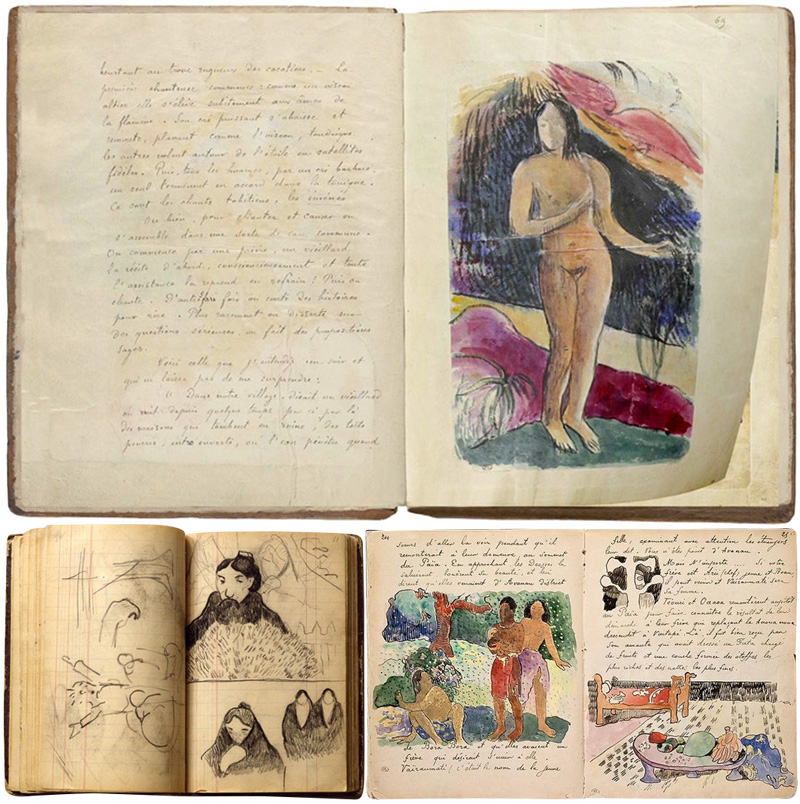 69
heurtant au tronc rugueux des cocotiers. — La
première chanteuse commence : comme un oiseau
altier elle s'élève subitement aux cîmes de
la flamme. Son cri puissant s'abaisse et
remonte, planant comme l'oiseau, tandisque
les autres volent autour de l'étoile en satellites
fidèles. Puis, tous les hommes, par un cri barbare,
un seul terminent en accord dans la tonique.
Ce sont les chants tahitiens, les iménés
Ou bien, pour chanter et causer on
s'assemble dans une sorte de case commune.
On commence par une prière, un vieillard
la récite d'abord, consciencieusement et toute
l'assistance la reprend en refrain. Puis on
chante. D'autres fois on conte des histoires
pour rire. Plus rarement on disserte sur
des questions sérieuses, on fait des propositions
sages.
Voici celle que j'entendis un soir et
qui ne laissa pas de me surprendre :
" Dans notre village, disait un vieillard
on voit depuis quelque temps par ci par là
des maisons qui tombent en ruine, des toits
pourris, entr'ouverts, où l'eau pénètre quand
24
soeurs d'aller la voir pendant qu'il
remonterait à leur demeure, au sommet
du Païa. En approchant les Déesses la
saluèrent louèrent sa beauté et lui
dirent qu'elles venaient d'Avanau District
de Bora Bora et qu'elles avaient un
frère qui desirait s'unir à elle.
Vaïraumati (c'était le nom de la jeune
25
fille, examinant avec attention les étrangères
leur dit. Vous n'êtes point d'Avanau.
Mais N'importe. Si votre
frère est Arii (chef) jeune et beau
Il peut venir et Vaïraumati sera
sa femme.
Teouri et Oaaoa remontèrent aussitôt
au Païa pour faire connaître le résultat de leur
démarche à leur frère qui replaçant le
descendit à Vaïtapé. Là, il fut bien reçu par
son amante qui avait dressé un Fata chargé
de fruits et une couche formée des étoffes les
plus riches et des nattes les plus fines.